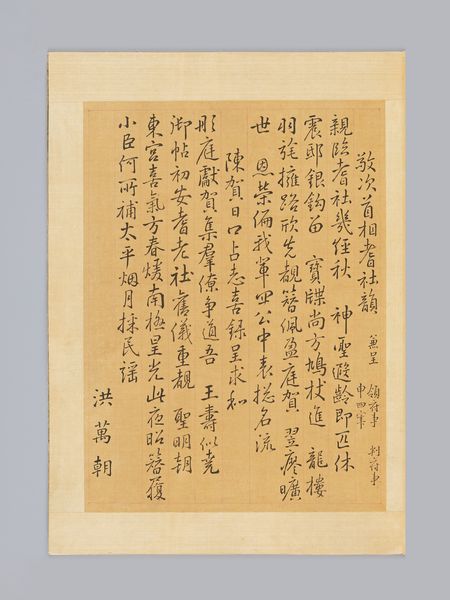 敬次首相耆社韻 兼呈 領府事 判府事
申四宰
親臨耆社幾經秋 神聖遐齡即匹休
震邸銀鉤留 寶牒尚方鳩杖進 龍樓
羽旄擁路欣先覩簪佩盈庭賀 翌瘳曠
世 恩榮偏我輩四公中表摠名流
陳賀日口占志喜錄呈求和
彤庭獻賀集羣僚爭道吾 王壽似堯
御帖初安耆老社舊儀重覩 聖明朝
東宮喜氣方春煖南極星光此夜昭簪履
小臣何所補太平烟月採民謠
洪萬朝